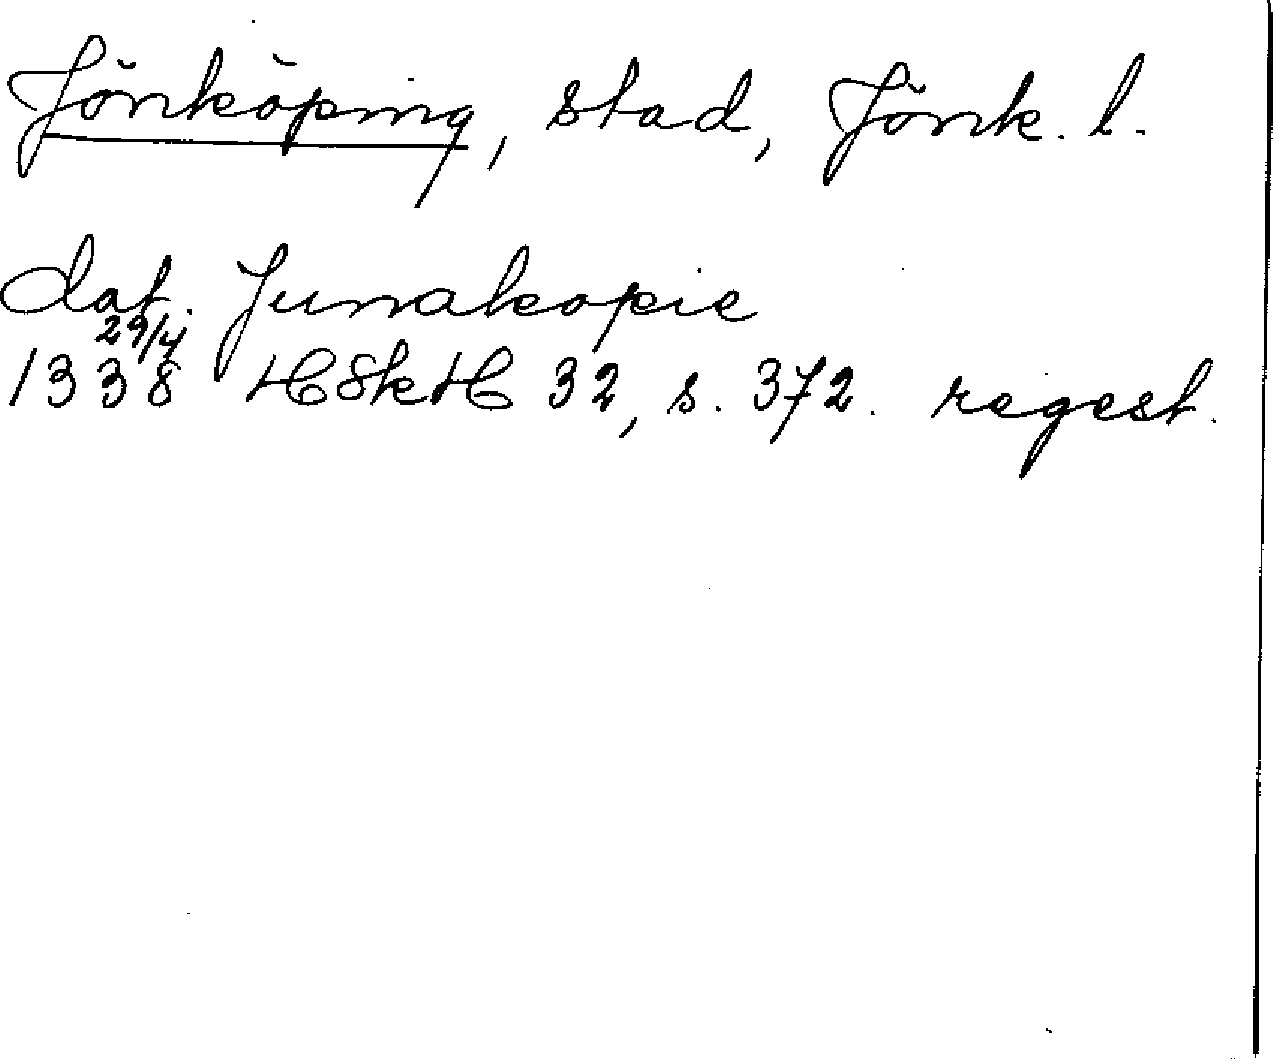 Jönköping, stad, Jönk. l.
dat. Junakopie
29/4
1338 HSkH 32, s. 372. regest.